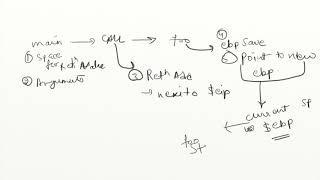 main → call → foo
④ ebp save
① Space for Reth Addre
② Arguments
③ Reth Add
→ next to $eip
⑤ Point to new ebp
current SP
$ebp
foo
ST